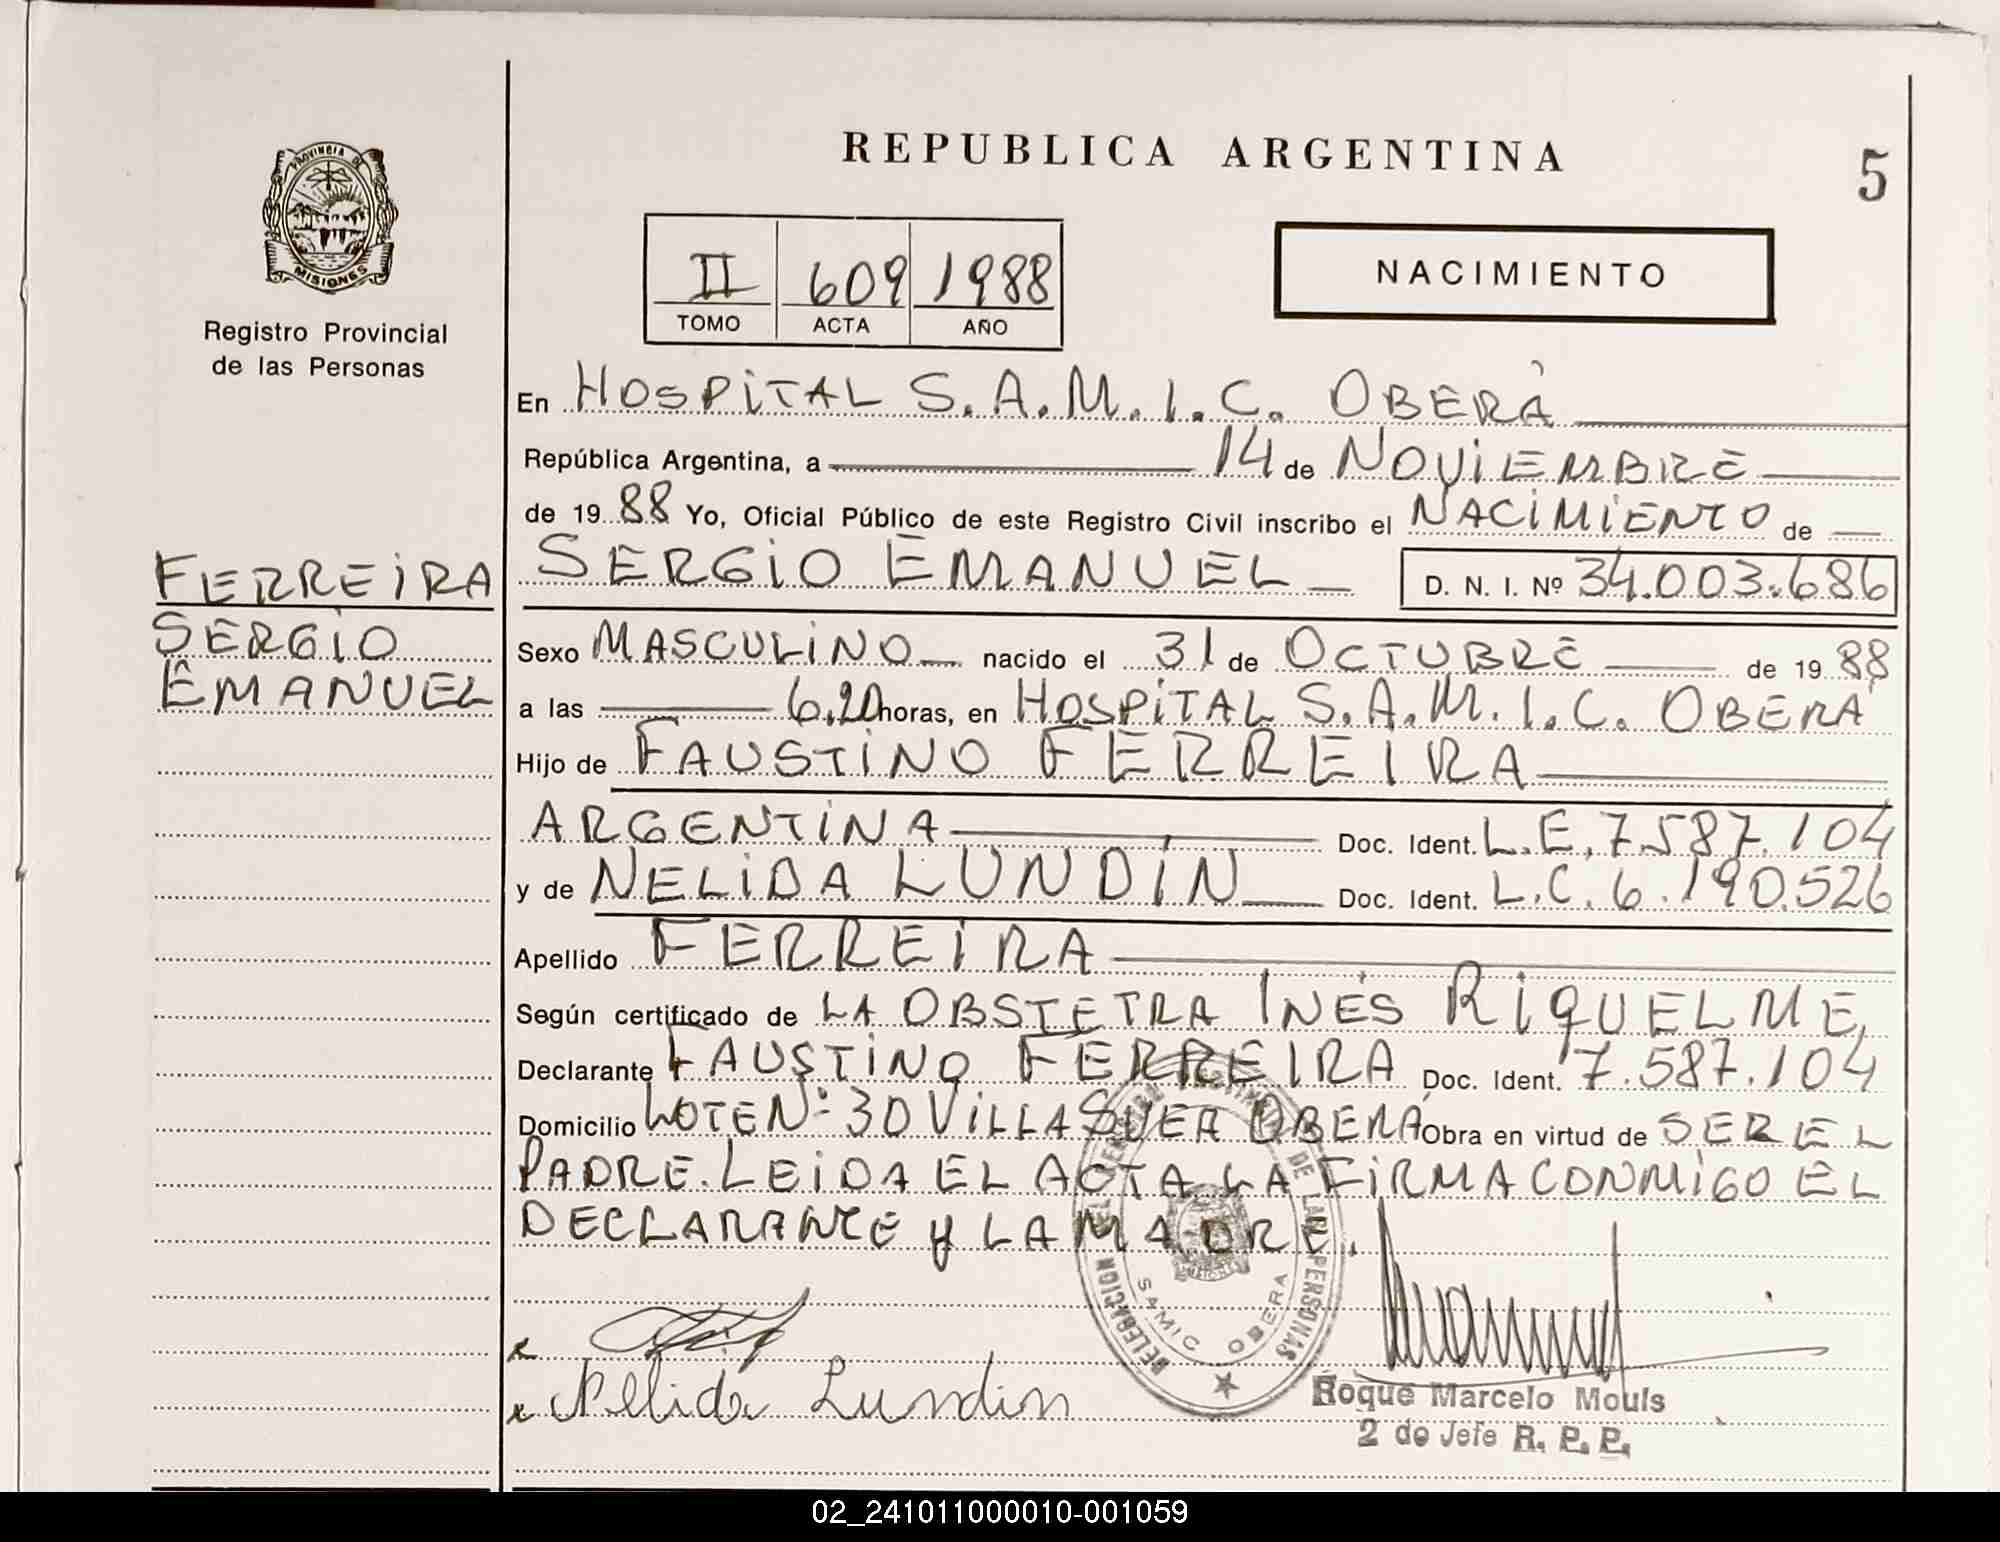 REPUBLICA ARGENTINA
5
PROVINCIA DE
MISIONES
Registro Provincial
de las Personas
II 609 1988
TOMO ACTA AÑO
NACIMIENTO
En HOSPITAL S.A.M.I.C. OBERÁ
República Argentina, a 14 de NOVIEMBRE
de 1988 Yo, Oficial Público de este Registro Civil inscribo el NACIMIENTO de
FERREIRA
SERGIO
EMANUEL
SERGIO EMANUEL D. N. I. Nº 34.003.686
Sexo MASCULINO nacido el 31 de OCTUBRE de 1988
a las 6,20 horas, en HOSPITAL S.A.M.I.C. OBERÁ
Hijo de FAUSTINO FERREIRA
ARGENTINA Doc. Ident. L.E. 7.587.104
y de NELIDA LUNDIN Doc. Ident. L.C. 6.190.526
Apellido FERREIRA
Según certificado de LA OBSTETRA INÉS RIQUELME,
Declarante FAUSTINO FERREIRA Doc. Ident. 7.587.104
Domicilio LOTE Nº 30 VILLA SUER OBERÁ Obra en virtud de SER EL
PADRE. LEIDA EL ACTA LA FIRMA CONMIGO EL
DECLARANTE Y LA MADRE.
DELEGACION DEL REGISTRO PROVINCIAL DE LAS PERSONAS
SAMIC OBERA
Nelida Lundin
Roque Marcelo Mouls
2 do Jefe R. P. P.
02_241011000010-001059